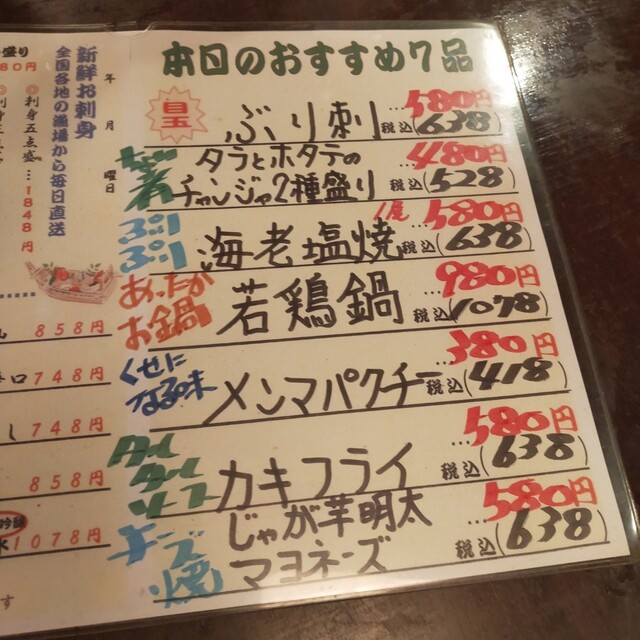 本日のおすすめ7品
目玉
ぶり刺
...580円
税込(638)
タラとホタテの
チャンジャ2種盛り
...480円
税込(528)
ぷり
ぷり
海老塩焼
1尾
580円
税込(638)
あったか
お鍋
若鶏鍋
980円
税込(1078)
くせに
なる味
メンマパクチー
...380円
税込(418)
タル
タル
ソース
カキフライ
...580円
税込(638)
チーズ
焼
じゃが芋明太
マヨネーズ
...580円
税込(638)
年 月 曜日
新鮮お刺身
全国各地の漁場から毎日直送
◎刺身五点盛...1848円
盛り
80円
858円
748円
し 748円
858円
1078円
す